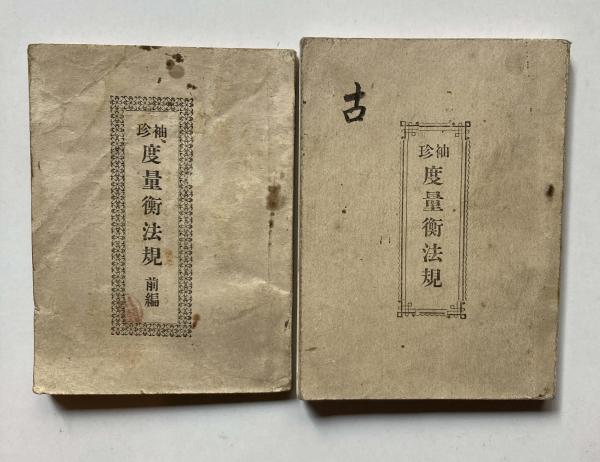 袖珍
度量衡法規 前編
古
袖珍
度量衡法規